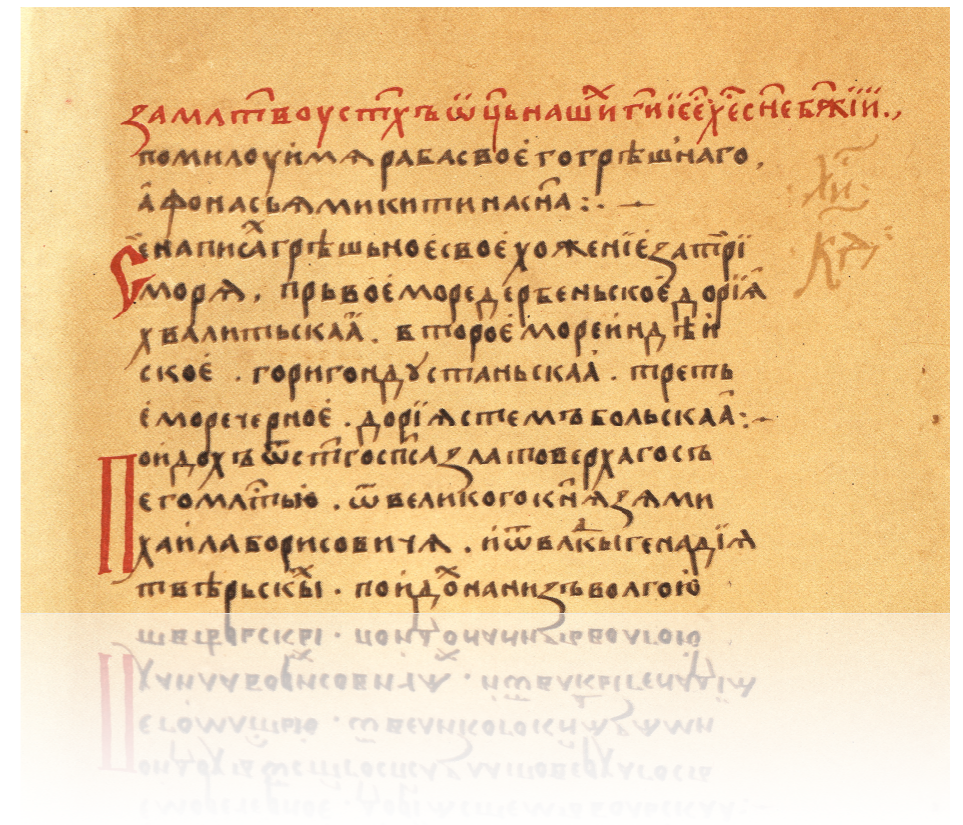 За мл҃твоу ст҃хъ ѿц҃ь нашиⷯ г҃и і҃се х҃е с҃не б҃жїи.,
помилоуй мѧ раба своего грѣшнаго,
афонасьꙗ микитина с҃на :·
Се написаⷯ грѣшьное свое хоженїе за три
морѧ, прьвое море дербеньское дорїꙗ
хвалитьскаа. второе море индѣй
ское. гори гондустаньскаа. треть
е море черное. дорїꙗ стемъбольскаа:
Поидохъ ѿ ст҃го сп҃са златоверхаго съ
его мл҃тью. ѿ великого кн҃ꙗзꙗ ми
хаила борисовичꙗ. и ѿ влⷣкы генадїꙗ
тверьскыⷯ. поидоⷯ нанизъ волгою